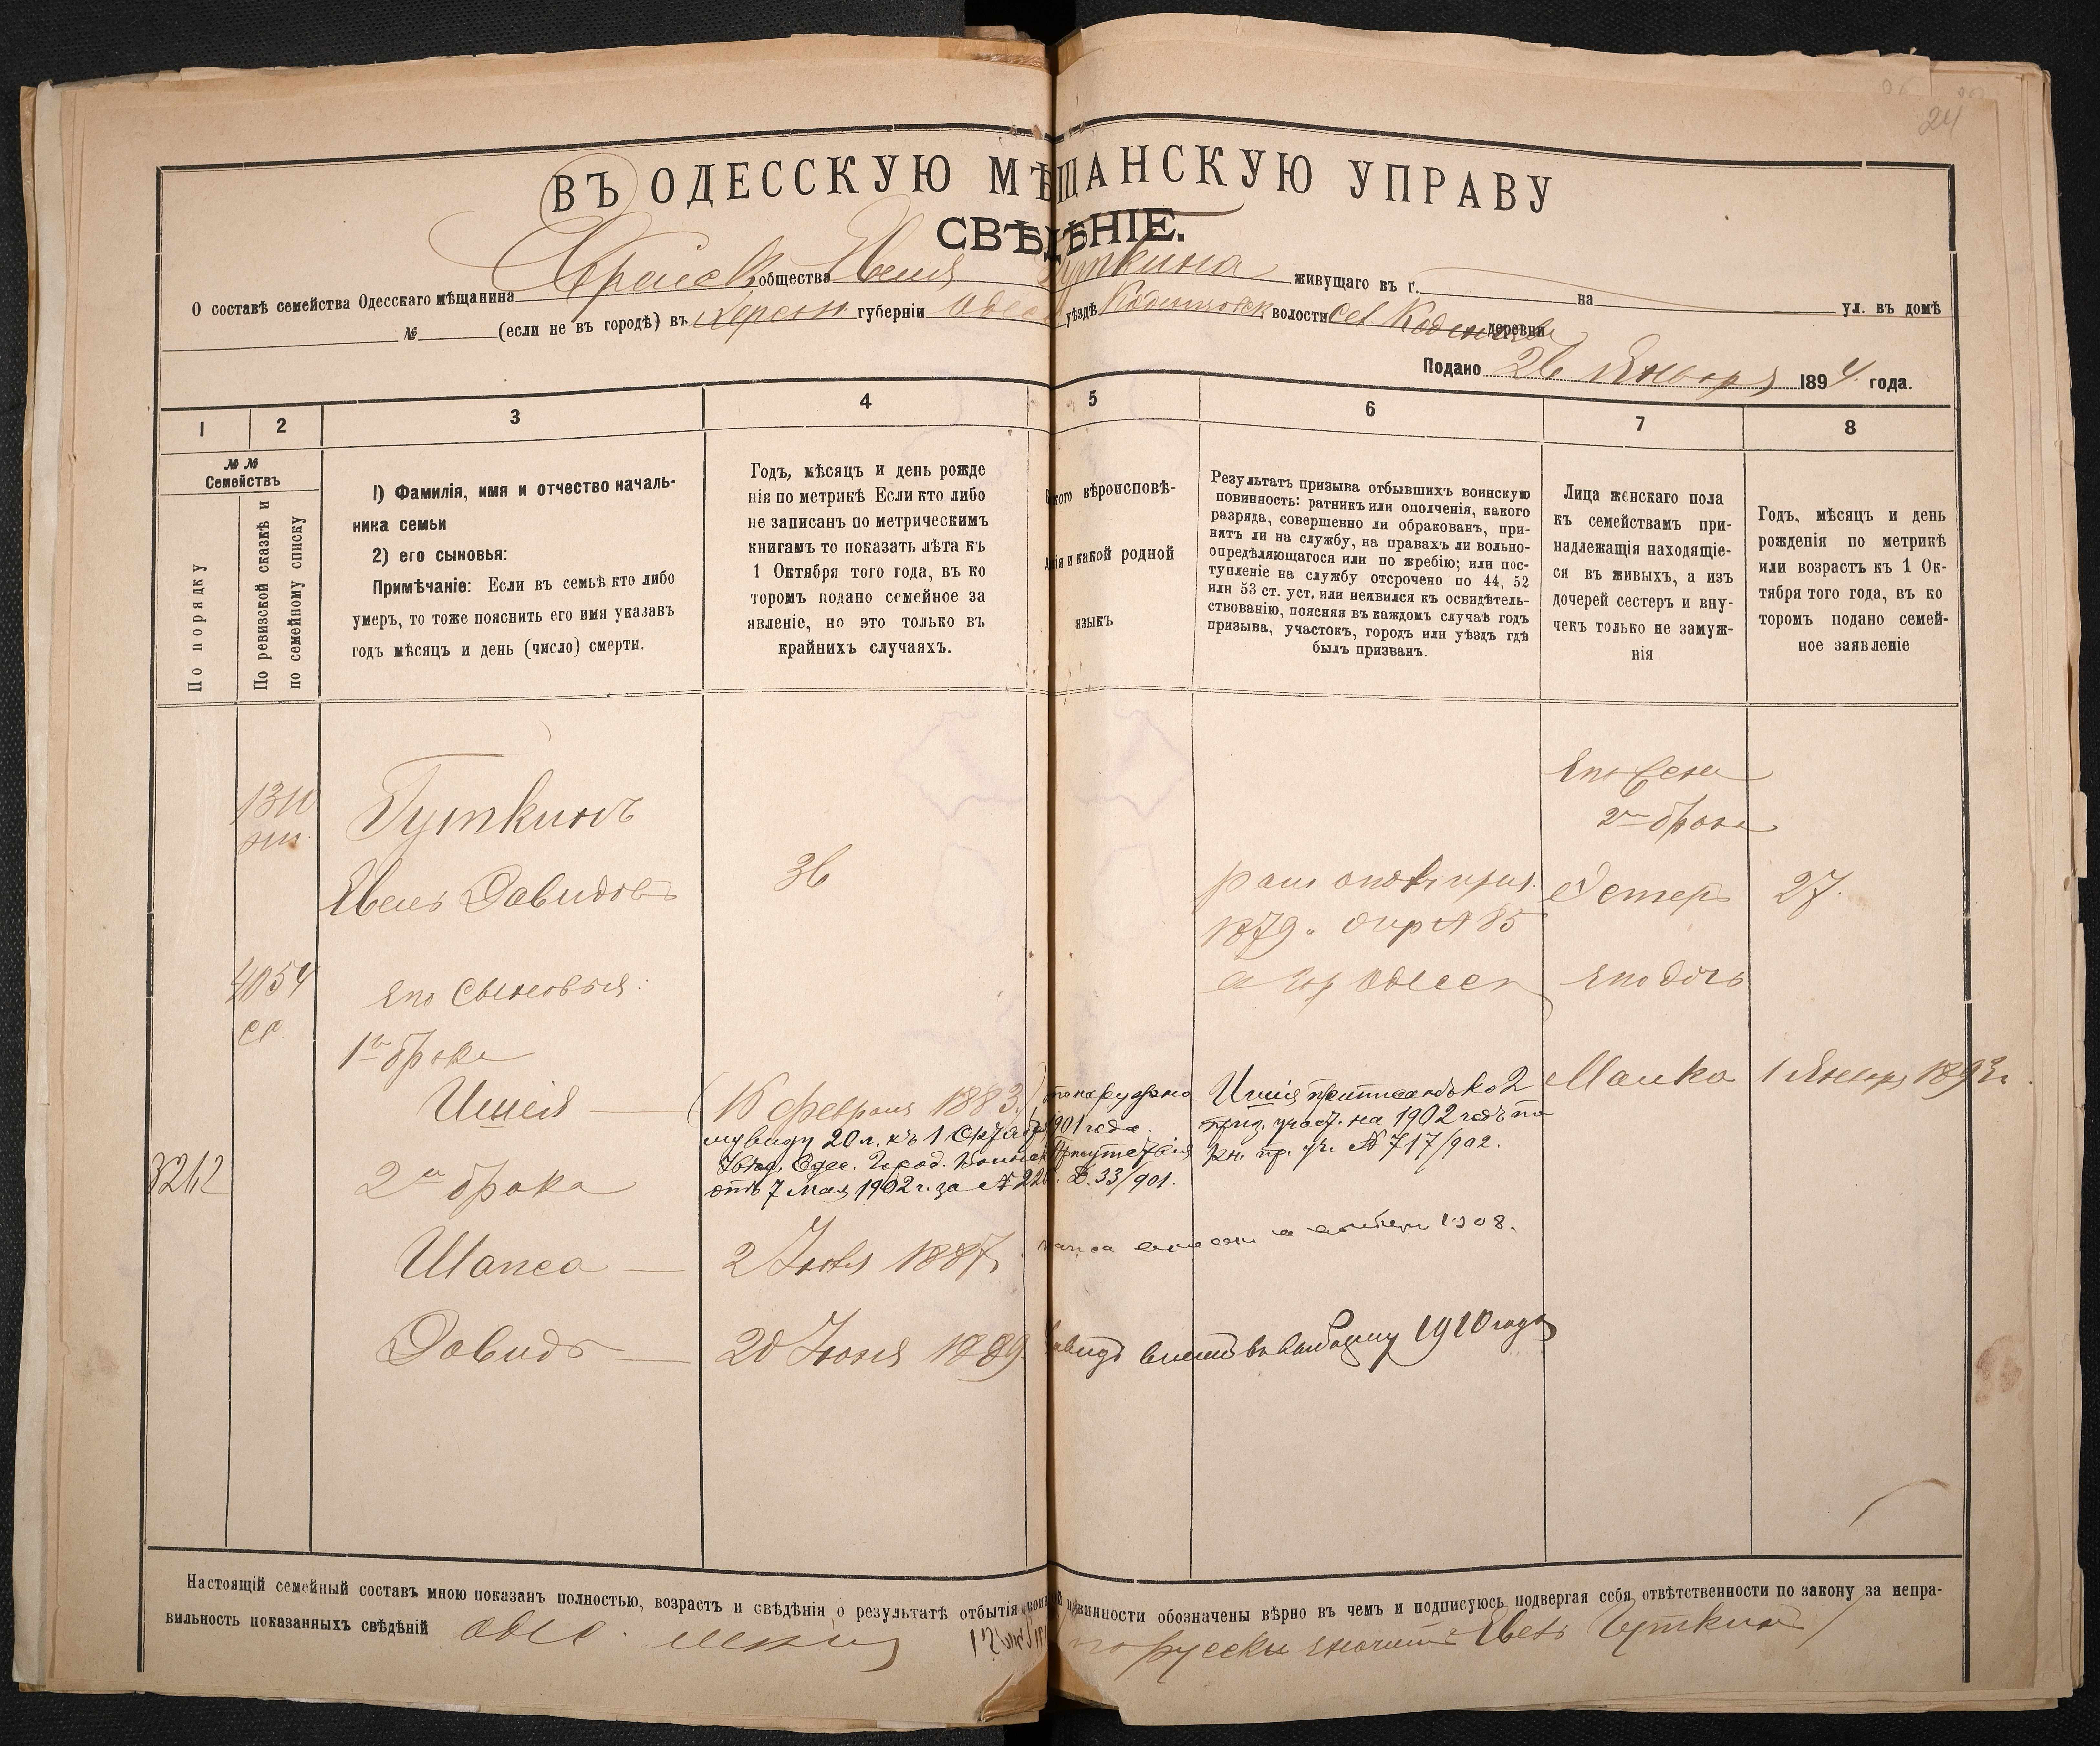 24
ВЪ ОДЕССКУЮ МѢЩАНСКУЮ УПРАВУ
СВѢДѢНІЕ.
О составѣ семейства Одесскаго мѣщанина общества Гуткина живущаго въ г. на ул. въ домѣ
№ (если не въ городѣ) въ Херсон губерніи Одес уѣздѣ волости деревни
Подано 26 Января 1894 года.
1 2 3 4 5 6 7 8
№№ Семействъ
По порядку
По ревизской сказкѣ и по семейному списку
1) Фамилія, имя и отчество началь-
ника семьи
2) его сыновья:
Примѣчаніе: Если въ семьѣ кто либо
умеръ, то тоже пояснить его имя указавъ
годъ мѣсяцъ и день (число) смерти.
Годъ, мѣсяцъ и день рожде
нія по метрикѣ Если кто либо
не записанъ по метрическимъ
книгамъ то показать лѣта къ
1 Октября того года, въ ко
торомъ подано семейное за
явленіе, но это только въ
крайнихъ случаяхъ.
вѣроисповѣ-
и какой родной
языкъ
Результатъ призыва отбывшихъ воинскую
повинность: ратникъ или ополченія, какого
разряда, совершенно ли обракованъ, при-
нятъ ли на службу, на правахъ ли вольно-
опредѣляющагося или по жребію; или пос-
тупленіе на службу отсрочено по 44, 52
или 53 ст. уст, или неявился къ освидѣтель-
ствованію, поясняя въ каждомъ случаѣ годъ
призыва, участокъ, городъ или уѣздъ гдѣ
былъ призванъ.
Лица женскаго пола
къ семействамъ при-
надлежащія находящіе-
ся въ живыхъ, а изъ
дочерей сестеръ и вну-
чекъ только не замуж-
нія
Годъ, мѣсяцъ и день
рожденія по метрикѣ
или возрастъ къ 1 Ок-
тября того года, въ ко
торомъ подано семей-
ное заявленіе
Его жена
2го брака
Гуткинъ
Евель Давидовъ 36 Эстеръ 27.
1879
4054 его сыновья: его дочь
1го брака
Ишія (18 февраля 1883.) по наружно Ишія приписанъ ко 2 Манка 1 Января 1893г.
му виду 20 л. къ 1 Октября 1901 года. приз. учас. на 1902 годъ по
Увѣд. Одес. Город. Воинск Присутствія кн. пр. уч. № 717/902.
отъ 7 Мая 1902 г. за № Д. 33/901.
3262 2го брака
Шапса 2 1887 1908.
Давидъ 20 Іюня 1889 Давидъ внесенъ въ выборку 1910 года
Настоящій семейный составъ мною показанъ полностью, возрастъ и свѣдѣнія о результатѣ отбытія воинской повинности обозначены вѣрно въ чемъ и подписуюсь подвергая себя отвѣтственности по закону за непра-
вильность показанныхъ свѣдѣній Одес. по русски значитъ Евель Гуткинъ